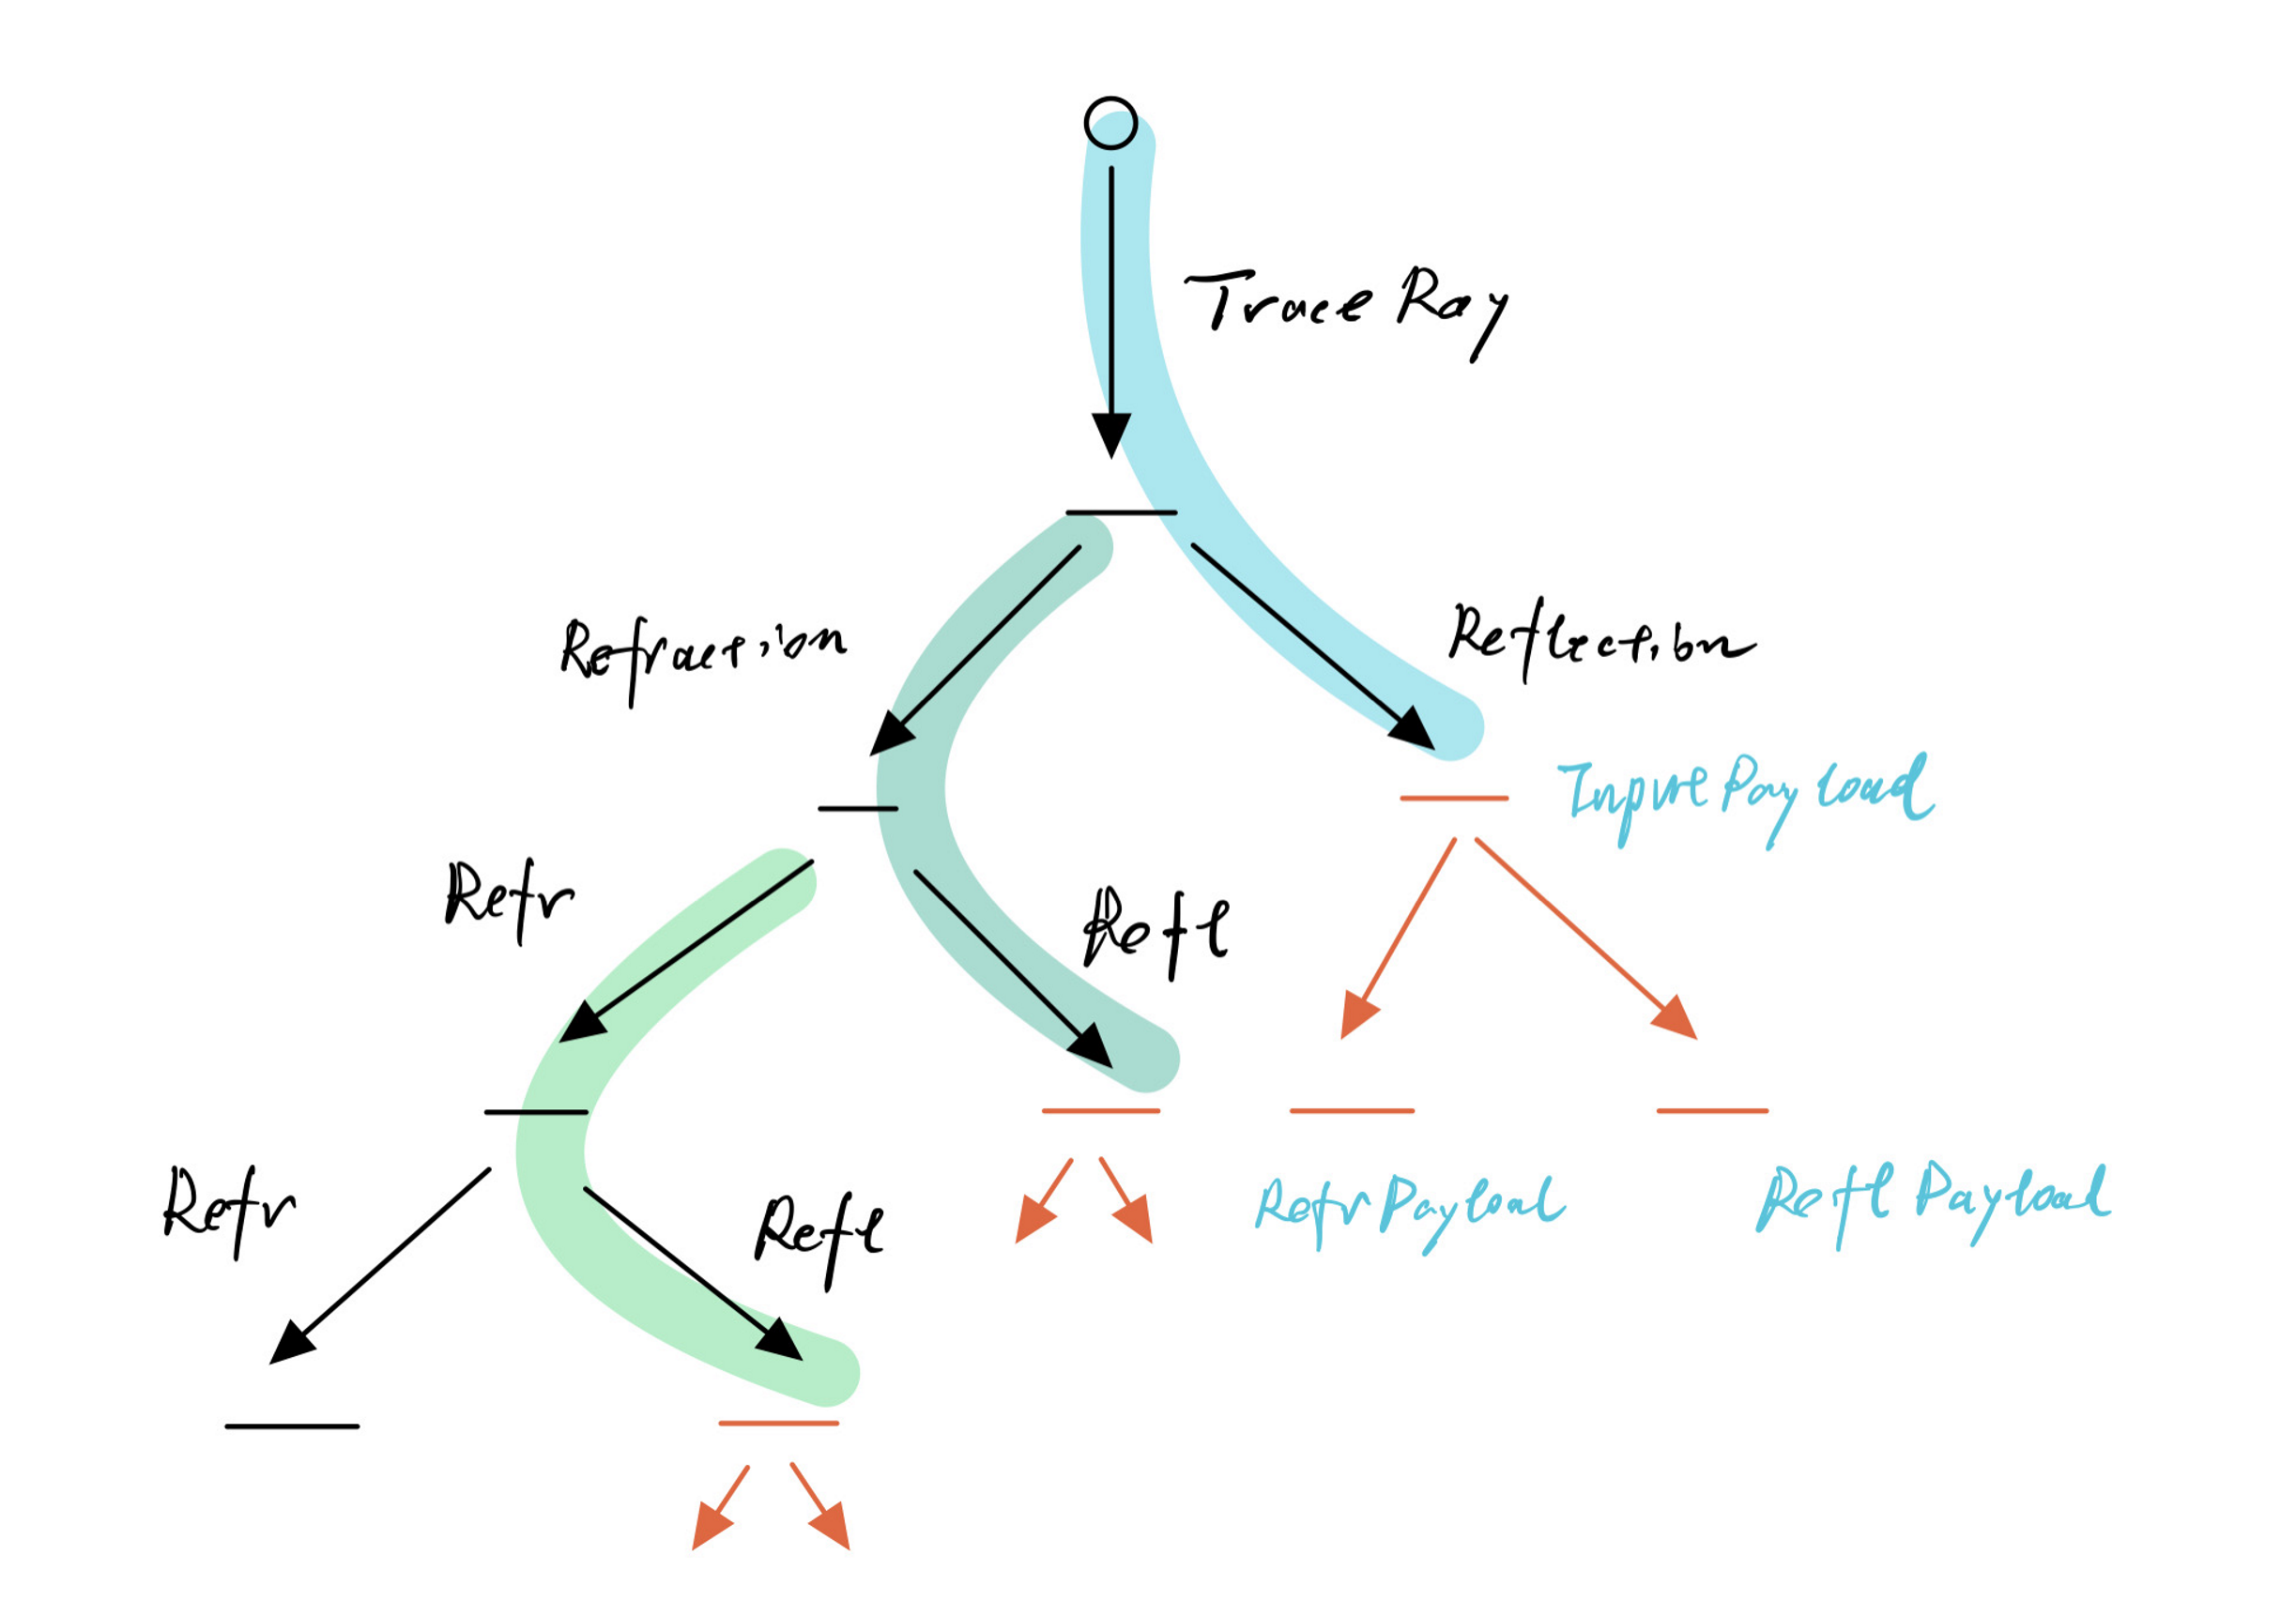 Trace Ray
Refraction
Reflection
Input Payload
Refr
Refl
Refr
Refl
Refr Payload
Refl Payload